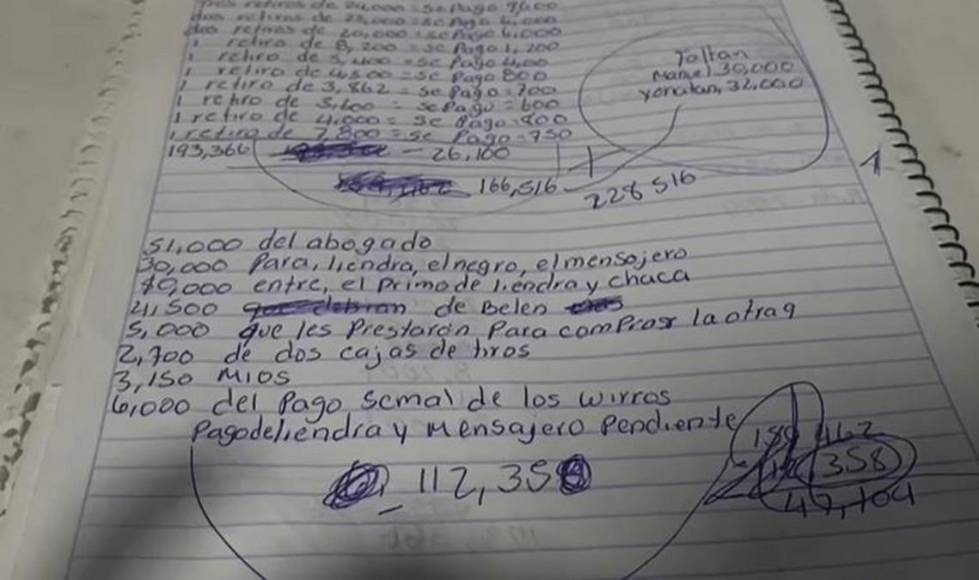 Tres retiros de 24,000 = se pago 7,600
dos retiros de 22,000 = se pago 6,000
dos retiros de 20,000 = se pago 6,000
1 retiro de 8,200 = se pago 1,200
1 retiro de 5,400 = se pago 4,00
1 retiro de 4,500 = se pago 800
1 retiro de 3,862 = se pago = 700
1 retiro de 3,600 = se pago = 600
1 retiro de 4,000 = se pago = 800
1 retiro de 7,800 = se pago = 750
Faltan
Manuel 30,000
yonatan, 32,000
193,366 - 26,100
166,516
+
228 516
1
51,000 del abogado
30,000 Para, liendra, el negro, el mensajero
10,000 entre, el primo de liendra y chaca
41,500 de Belen
5,000 que les Prestaron Para comprar la otra 9
2,700 de dos cajas de tiros
3,150 Mios
6,000 del Pago semal de los wirros
Pago de liendra y Mensajero Pendiente
- 112,358
462
358
47,104